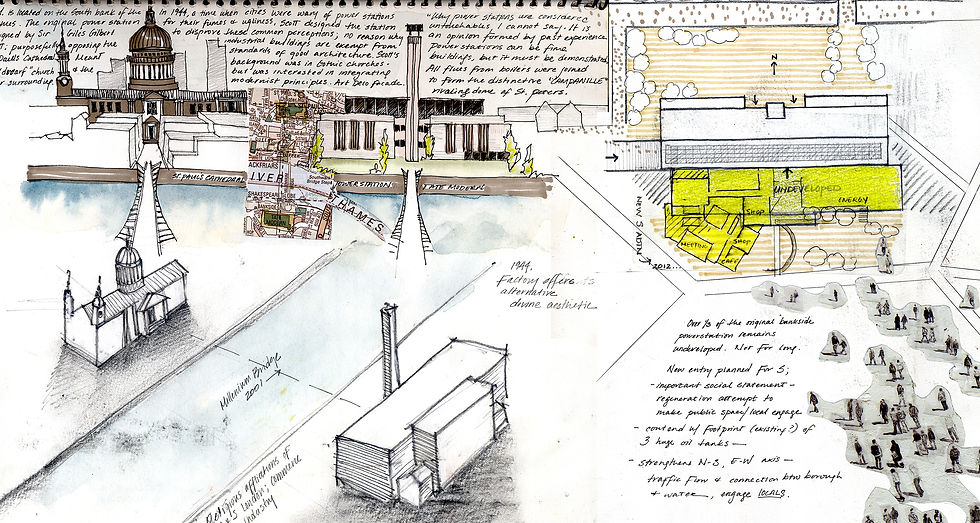 is located on the South bank of the
original power station
Sir Giles Gilbert
purposefully opposing the
Cathedral. Meant
church & the
surrounding
In 1944, a time when cities were wary of power stations
for their fumes & ugliness, Scott designed the station
to disprove these common perceptions; no reason why
industrial buildings are exempt from
standards of good architecture. Scott's
background was in Gothic churches.
but was interested in integrating
modernist principals. Art Deco facade.
"Why power stations are considered
untouchable, I cannot say. It is
an opinion formed by past experience.
Powerstations can be fine
buildings, but it must be demonstrated.
All flues from boilers were joined
to form the distinctive "CAMPANILLE"
rivaling dome of St. peters.
ST. PAUL'S CATHEDRAL
POWERSTATION
TATE MODERN
ACKFRIARS
IVER
THAMES
SHAKESPEARE
Bridge
TATE
MODERN
1944.
Factory offers its
alternative
divine aesthetic
Millenium Bridge
2001
Religious affirations of
London, commerce
industry
N
UNDEVELOPED
ENERGY
SHOP
SHOP
MEETING
CAFE
NEW S. ADTN
2012...
Over 1/3 of the original bankside
powerstation remains
undeveloped. Not for long.
New entry planned for S;
- important social statement -
regeneration attempt to
make public space/local engage
- contend w/ footprint (existing?) of
3 huge oil tanks —
- strengthens N-S, E-W axis —
traffic flow & connection btw borough
+ water, engage LOCALS.